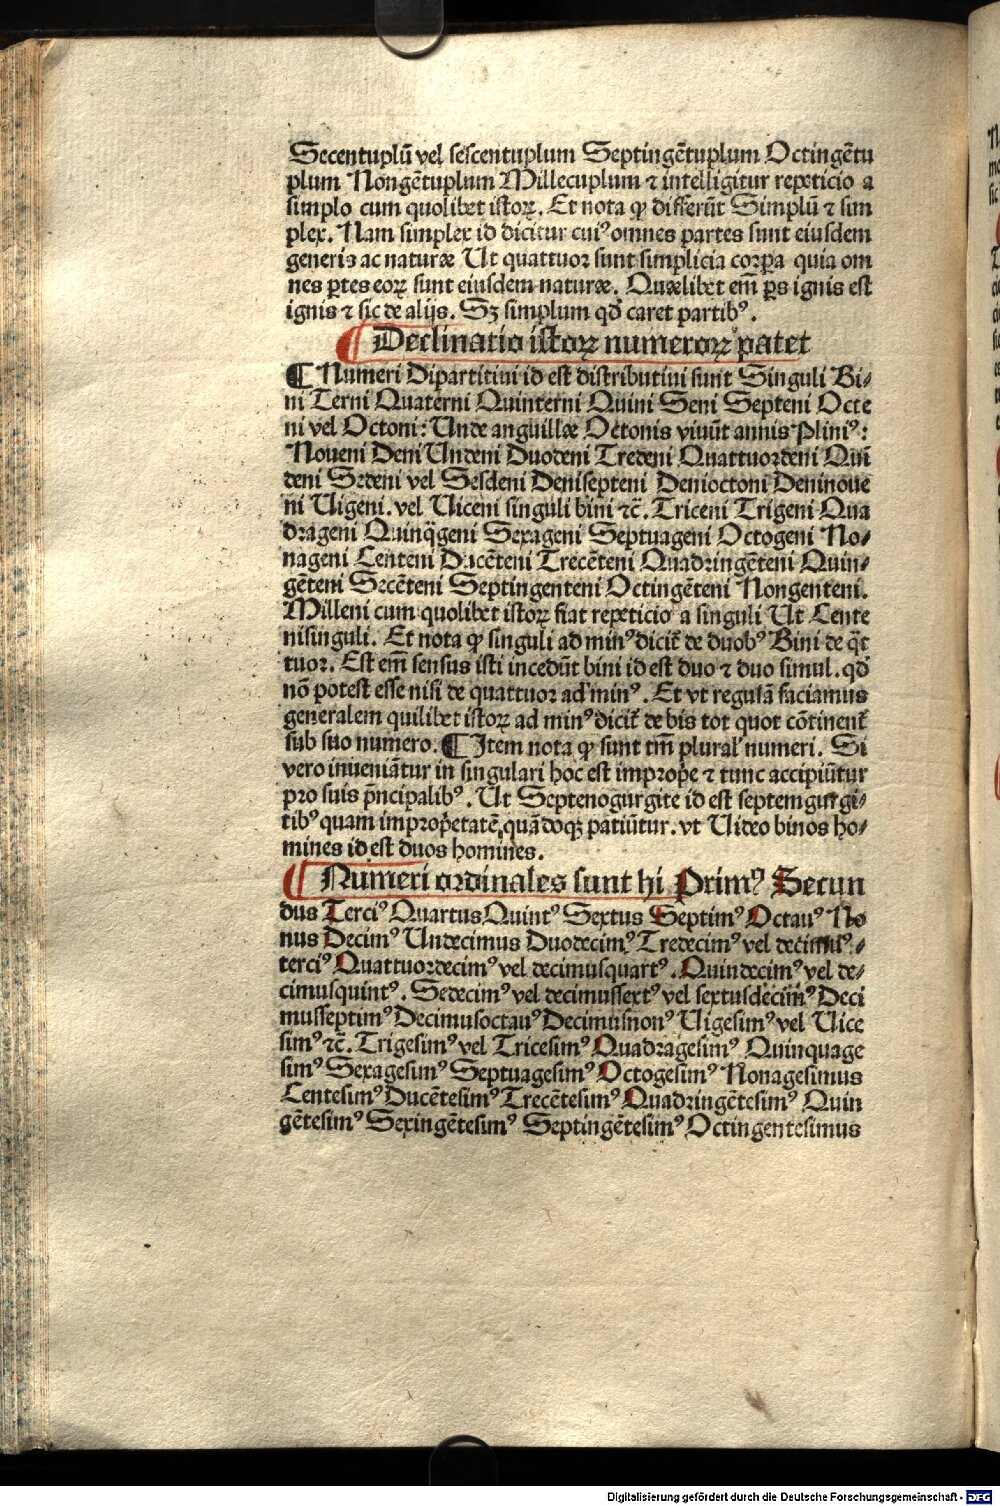 Secentuplū vel sescentuplum Septingētuplum Octingētu
plum Nongētuplum Millecuplum ⁊ intelligitur repeticio a
simplo cum quolibet istoꝝ. Et nota ꝙ differūt Simplū ⁊ sim
plex. Nam simplex id dicitur cuiꝰ omnes partes sunt eiusdem
generis ac naturæ Ut quattuor sunt simplicia corpa quia om
nes ꝑtes eoꝝ sunt eiusdem naturæ. Quælibet em̄ ꝑs ignis est
ignis ⁊ sic de alijs. Sꝫ simplum qd̄ caret partibꝰ.
Declinatio istoꝝ numeroꝝ patet
¶ Numeri Dipartitiui id est distributiui sunt Singuli Bi⸗
ni Terni Quaterni Quinterni Quini Seni Septeni Octe
ni vel Octoni: Unde anguillæ Octonis viuūt annis Pliniꝰ:
Noueni Deni Undeni Duodeni Tredeni Quattuordeni Quī
deni Sedeni vel Sesdeni Denisepteni Denioctoni Deninoue
ni Uigeni. vel Uiceni singuli bini ⁊c̄. Triceni Trigeni Qua
drageni Quinq̄geni Sexageni Septuageni Octogeni No⸗
nageni Centeni Ducēteni Trecēteni Quadringēteni Quin⸗
gēteni Secēteni Septingenteni Octingēteni Nongenteni.
Milleni cum quolibet istoꝝ fiat repeticio a singuli Ut Cente
nisinguli. Et nota ꝙ singuli ad minꝰ dicit̄ de duobꝰ Bini de q̄t
tuor. Est em̄ sensus isti incedūt bini id est duo ⁊ duo simul. qd̄
nō potest esse nisi de quattuor ad minꝰ. Et vt regulā faciamus
generalem quilibet istoꝝ ad minꝰ dicit̄ de bis tot quot cōtinent̄
sub suo numero. ¶ Item nota ꝙ sunt tm̄ plural' numeri. Si
vero inueniātur in singulari hoc est imprope ⁊ tunc accipiūtur
pro suis p̄ncipalibꝰ. Ut Septenogurgite id est septemgurgi⸗
tibꝰ quam impropetatē quādoqꝫ patiūtur. vt Uideo binos ho⸗
mines id est duos homines.
Numeri ordinales sunt hi Primꝰ Secun
dus Terciꝰ Quartus Quintꝰ Sextus Septimꝰ Octauꝰ No
nus Decimꝰ Undecimus Duodecimꝰ Tredecimꝰ vel decimusꝰ⸗
terciꝰ Quattuordecimꝰ vel decimusquartꝰ. Quindecimꝰ vel de⸗
cimusquintꝰ. Sedecimꝰ vel decimussextꝰ vel sextusdecimꝰ Deci
musseptimꝰ Decimusoctauꝰ Decimusnonꝰ Uigesimꝰ vel Uice
simꝰ ⁊c̄. Trigesimꝰ vel Tricesimꝰ Quadragesimꝰ Quinquage
simꝰ Sexagesimꝰ Septuagesimꝰ Octogesimꝰ Nonagesimus
Centesimꝰ Ducētesimꝰ Trecētesimꝰ Quadringētesimꝰ Quin
gētesimꝰ Sexingētesimꝰ Septingētesimꝰ Octingentesimus
Digitalisierung gefördert durch die Deutsche Forschungsgemeinschaft - DFG